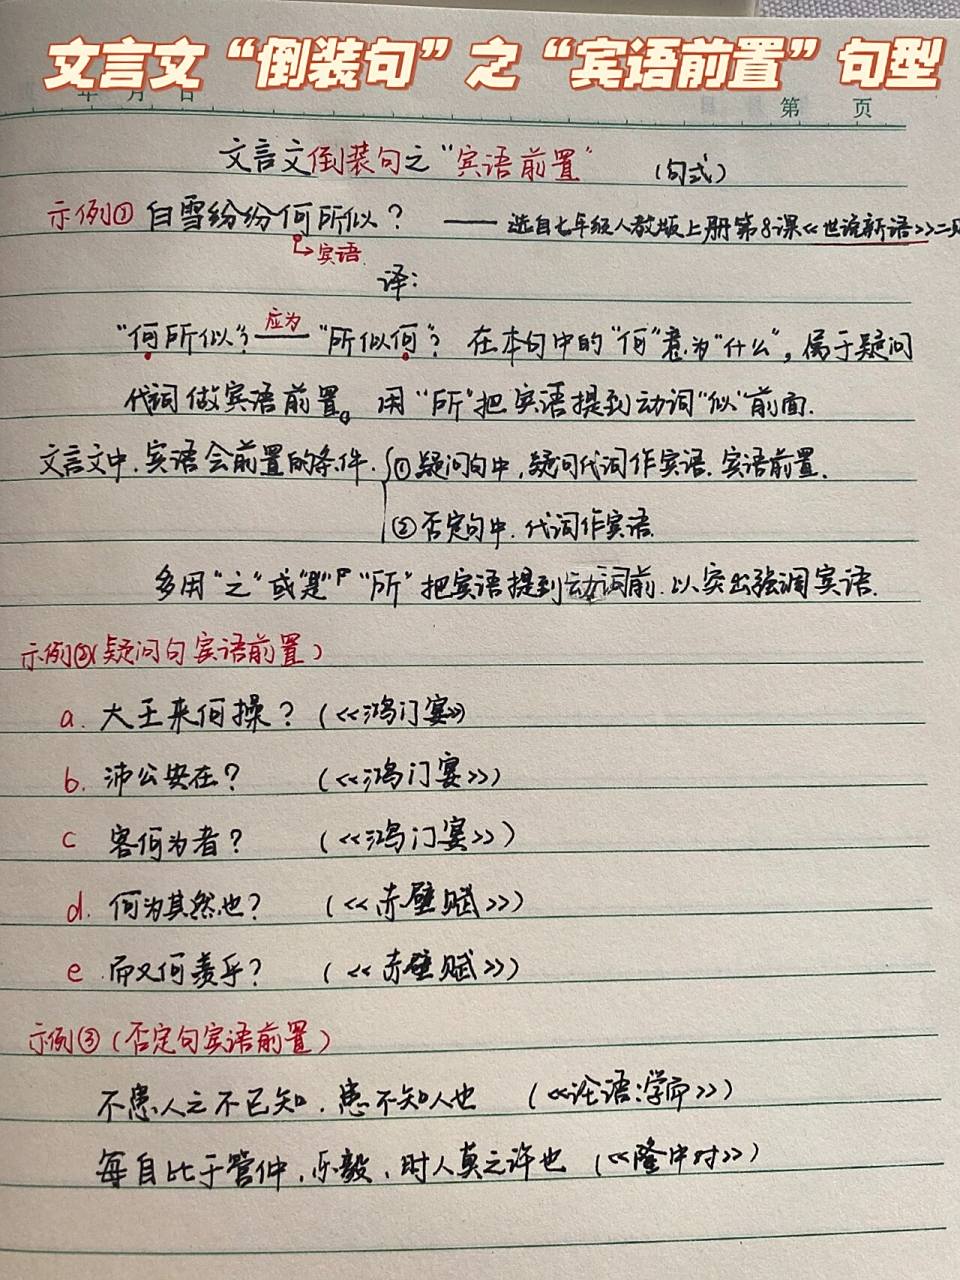 文言文“倒装句”之“宾语前置”句型
年 月 日
第 页
文言文倒装句之“宾语前置” (句式)
示例① 白雪纷纷何所似? —— 选自七年级人教版上册第8课《世说新语》二则
宾语
译:
“何所似”? 应为 “所似何”? 在本句中的“何”意为“什么”, 属于疑问
代词做宾语前置。用“所”把宾语提到动词“似”前面.
文言文中, 宾语会前置的条件. ①疑问句中, 疑问代词作宾语. 宾语前置.
②否定句中. 代词作宾语.
多用“之”或“是” “所”把宾语提到动词前. 以突出强调宾语.
示例②(疑问句宾语前置)
a. 大王来何操? (《鸿门宴》)
b. 沛公安在? (《鸿门宴》)
c 客何为者? (《鸿门宴》)
d. 何为其然也? (《赤壁赋》)
e 而又何羡乎? (《赤壁赋》)
示例③(否定句宾语前置)
不患人之不己知. 患不知人也 (《论语·学而》)
每自比于管仲, 乐毅, 时人莫之许也 (《隆中对》)